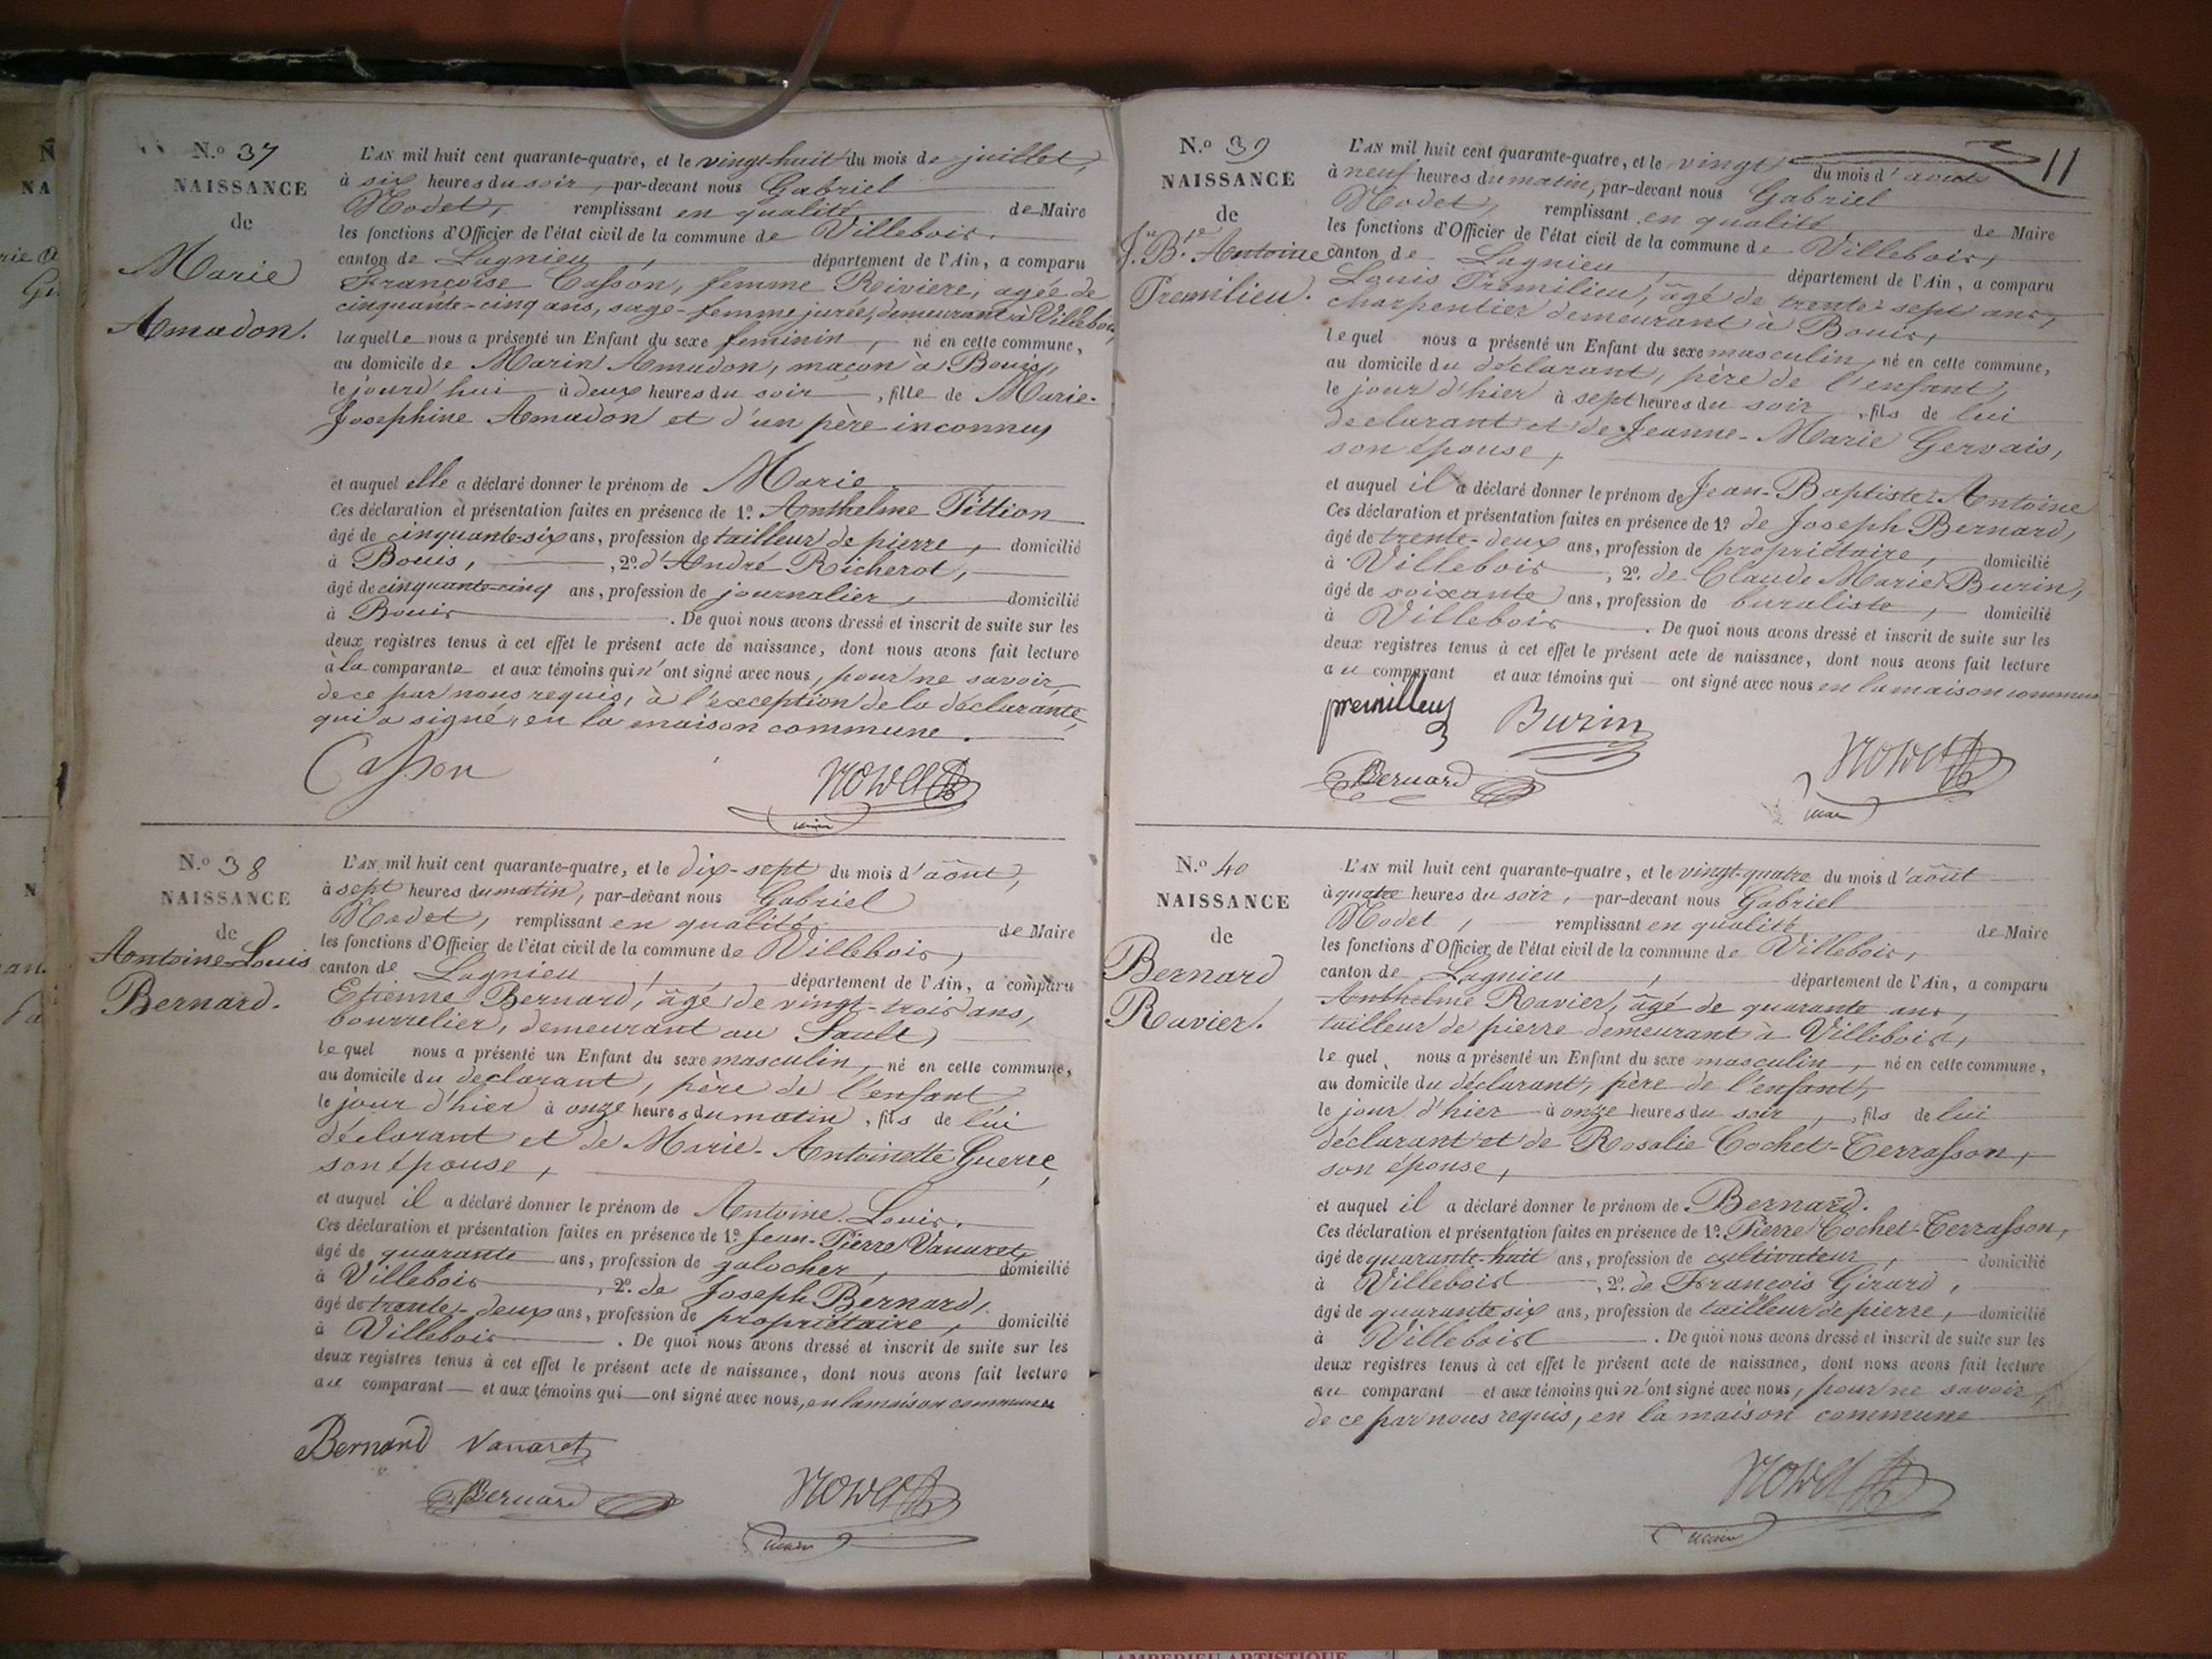 N.º 37
NAISSANCE
de
Marie
Amadon.
L'AN mil huit cent quarante-quatre, et le vingt-huit du mois de juillet,
à six heures du soir, par-devant nous Gabriel
Nodet, remplissant en qualité de Maire
les fonctions d'Officier de l'état civil de la commune de Villebois,
canton de Lagnieu, département de l'Ain, a comparu
Françoise Casson, femme Riviere, agée de
cinquante-cinq ans, sage-femme jurée, demeurant à Villebois,
laquelle nous a présenté un Enfant du sexe feminin, né en cette commune,
au domicile de Marin Amadon, maçon à Bouis,
le jourd'hui à deux heures du soir, fille de Marie-
Josephine Amadon et d'un père inconnu,
et auquel elle a déclaré donner le prénom de Marie.
Ces déclaration et présentation faites en présence de 1º Anthelme Tittion
âgé de cinquante-six ans, profession de tailleur de pierre, domicilié
à Bouis, 2º d'André Richerot,
âgé de cinquante-cinq ans, profession de journalier, domicilié
à Bouis. De quoi nous avons dressé et inscrit de suite sur les
deux registres tenus à cet effet le présent acte de naissance, dont nous avons fait lecture
à la comparante et aux témoins qui n'ont signé avec nous, pour ne savoir,
de ce par nous requis, à l'exception de la déclarante,
qui a signé, en la maison commune.
Casson
Nodet
maire
N.º 38
NAISSANCE
de
Antoine-Louis
Bernard.
L'AN mil huit cent quarante-quatre, et le dix-sept du mois d'août,
à sept heures du matin, par-devant nous Gabriel
Nodet, remplissant en qualité de Maire
les fonctions d'Officier de l'état civil de la commune de Villebois,
canton de Lagnieu, département de l'Ain, a comparu
Etienne Bernard, âgé de vingt-trois ans,
bourrelier, demeurant au Sault,
lequel nous a présenté un Enfant du sexe masculin, né en cette commune,
au domicile du declarant, père de l'enfant
le jour d'hier à onze heures du matin, fils de lui
déclarant et de Marie-Antoinette Guerre,
son épouse,
et auquel il a déclaré donner le prénom de Antoine-Louis.
Ces déclaration et présentation faites en présence de 1º Jean-Pierre Vanaret,
âgé de quarante ans, profession de galocher, domicilié
à Villebois, 2º. de Joseph Bernard,
âgé de trente-deux ans, profession de propriétaire, domicilié
à Villebois. De quoi nous avons dressé et inscrit de suite sur les
deux registres tenus à cet effet le présent acte de naissance, dont nous avons fait lecture
au comparant et aux témoins qui ont signé avec nous, en la maison commune
Bernard Vanaret
Bernard
Nodet
maire
11
N.º 39
NAISSANCE
de
J.n B.te Antoine
Premilieu.
L'AN mil huit cent quarante-quatre, et le vingt du mois d'août
à neuf heures du matin, par-devant nous Gabriel
Nodet, remplissant en qualité de Maire
les fonctions d'Officier de l'état civil de la commune de Villebois,
canton de Lagnieu, département de l'Ain, a comparu
Louis Premilieu, âgé de trente-sept ans,
charpentier demeurant à Bouis,
lequel nous a présenté un Enfant du sexe masculin, né en cette commune,
au domicile du déclarant, père de l'enfant,
le jour d'hier à sept heures du soir, fils de lui
declarant et de Jeanne-Marie Gervais,
son épouse,
et auquel il a déclaré donner le prénom de Jean-Baptiste-Antoine
Ces déclaration et présentation faites en présence de 1º de Joseph Bernard,
âgé de trente-deux ans, profession de propriétaire, domicilié
à Villebois, 2º. de Claude Marie Burin,
âgé de soixante ans, profession de buraliste, domicilié
à Villebois. De quoi nous avons dressé et inscrit de suite sur les
deux registres tenus à cet effet le présent acte de naissance, dont nous avons fait lecture
au comparant et aux témoins qui ont signé avec nous en la maison commune
premillieu Burin
Bernard
Nodet
maire
N.º 40
NAISSANCE
de
Bernard
Ravier.
L'AN mil huit cent quarante-quatre, et le vingt-quatre du mois d'août
à quatre heures du soir, par-devant nous Gabriel
Nodet, remplissant en qualité de Maire
les fonctions d'Officier de l'état civil de la commune de Villebois,
canton de Lagnieu, département de l'Ain, a comparu
Anthelme Ravier, âgé de quarante ans,
tailleur de pierre demeurant à Villebois,
lequel nous a présenté un Enfant du sexe masculin, né en cette commune,
au domicile du déclarant, père de l'enfant,
le jour d'hier à onze heures du soir, fils de lui
déclarant et de Rosalie Cochet-Terrasson,
son épouse,
et auquel il a déclaré donner le prénom de Bernard.
Ces déclaration et présentation faites en présence de 1º. Pierre Cochet-Terrasson,
âgé de quarante-huit ans, profession de cultivateur, domicilié
à Villebois, 2º. de François Girard,
âgé de quarante six ans, profession de tailleur de pierre, domicilié
à Villebois. De quoi nous avons dressé et inscrit de suite sur les
deux registres tenus à cet effet le présent acte de naissance, dont nous avons fait lecture
au comparant et aux témoins qui n'ont signé avec nous, pour ne savoir,
de ce par nous requis, en la maison commune
Nodet
maire